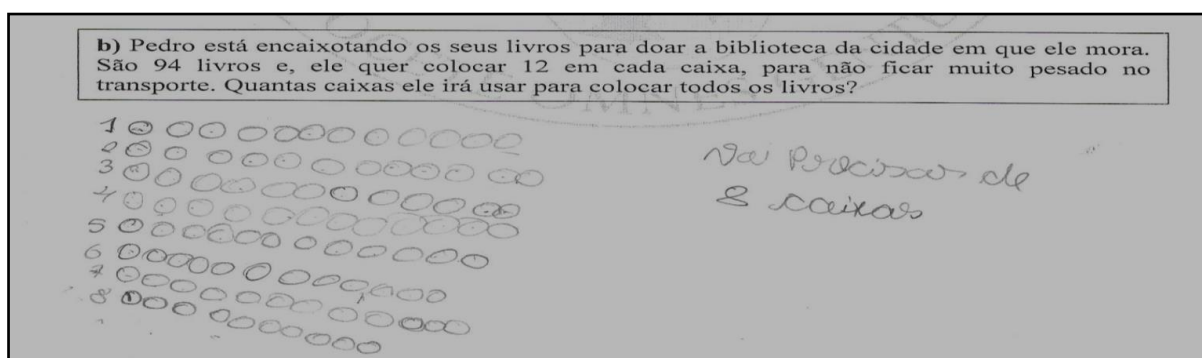 b) Pedro está encaixotando os seus livros para doar a biblioteca da cidade em que ele mora.
São 94 livros e, ele quer colocar 12 em cada caixa, para não ficar muito pesado no
transporte. Quantas caixas ele irá usar para colocar todos os livros?
1
2
3
4
5
6
7
8
Vai Precisar de
8 caixas
OMNES